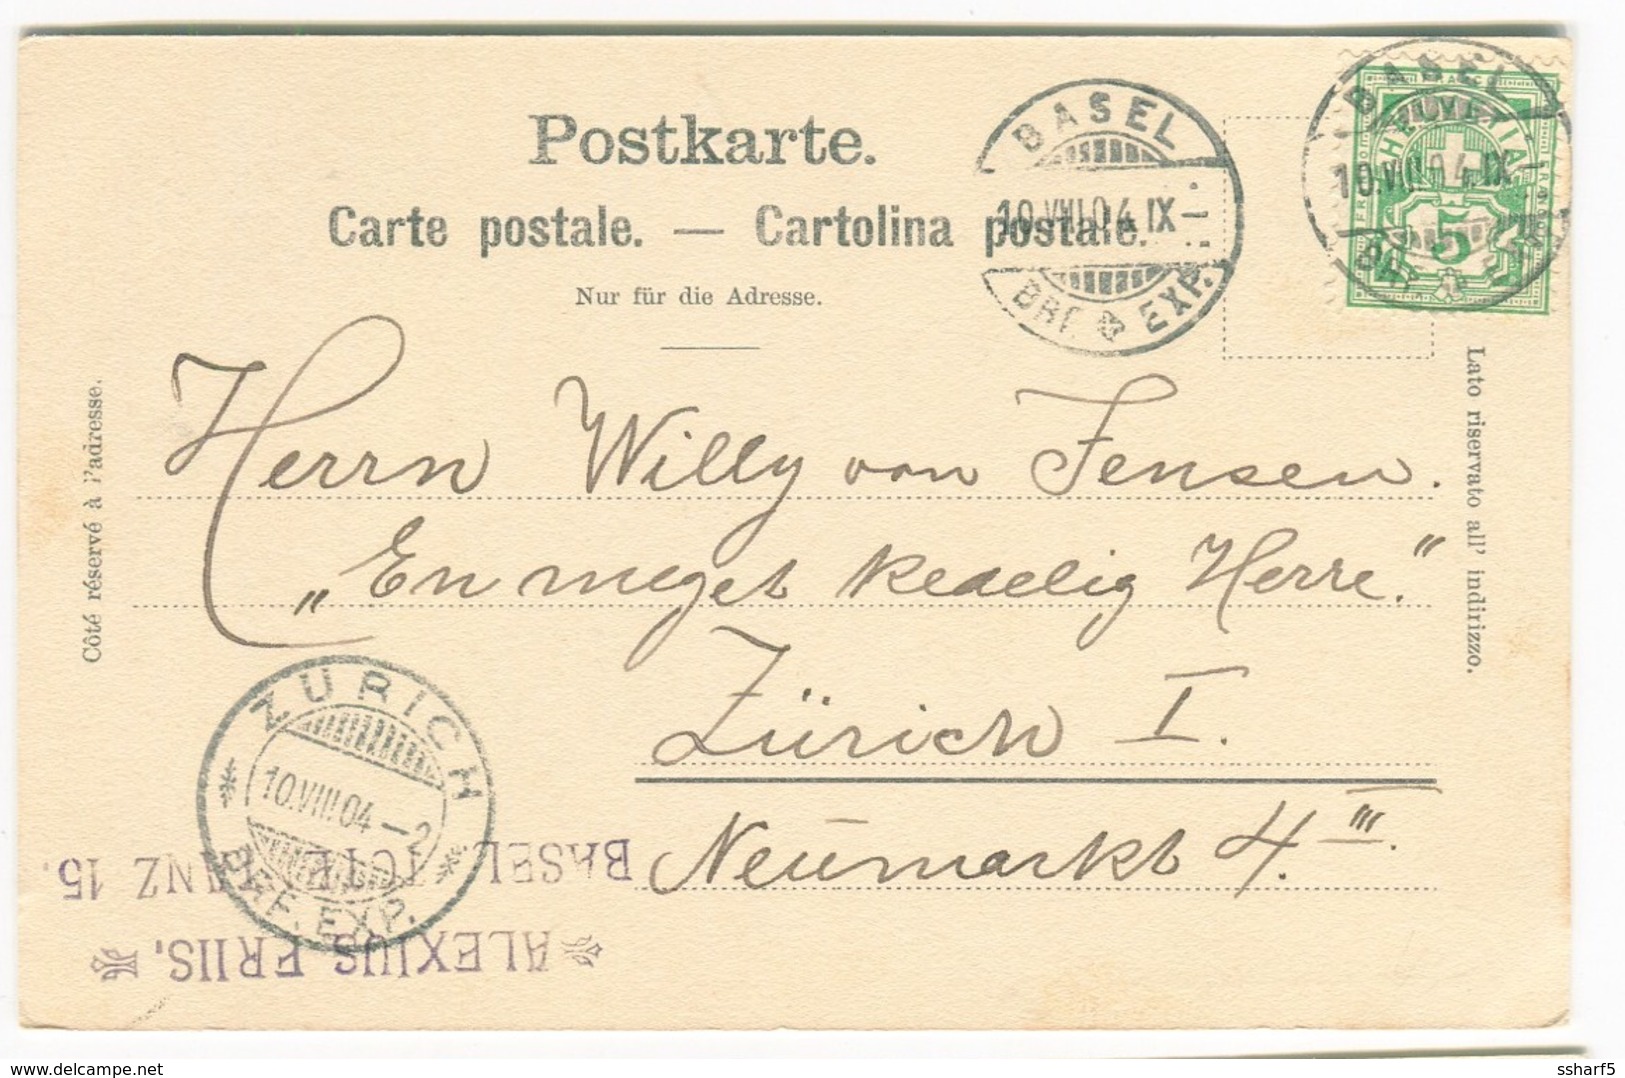 Postkarte.
Carte postale. — Cartolina postale.
Nur für die Adresse.
BASEL
10.VIII.04.IX–
BRF. EXP.
BASEL
10.VIII.04.IX–
HELVETIA
FRANCO
5
Côté réservé à l'adresse.
Lato riservato all' indirizzo.
Herrn Willy von Jensen.
„En meget kedelig Herre.“
Zürich I.
Neumarkt 4.III.
ZÜRICH
10.VIII.04–2
BRF. EXP.
ALEXIUS FRIIS,
BASEL 15.
delcampe.net
ssharf5